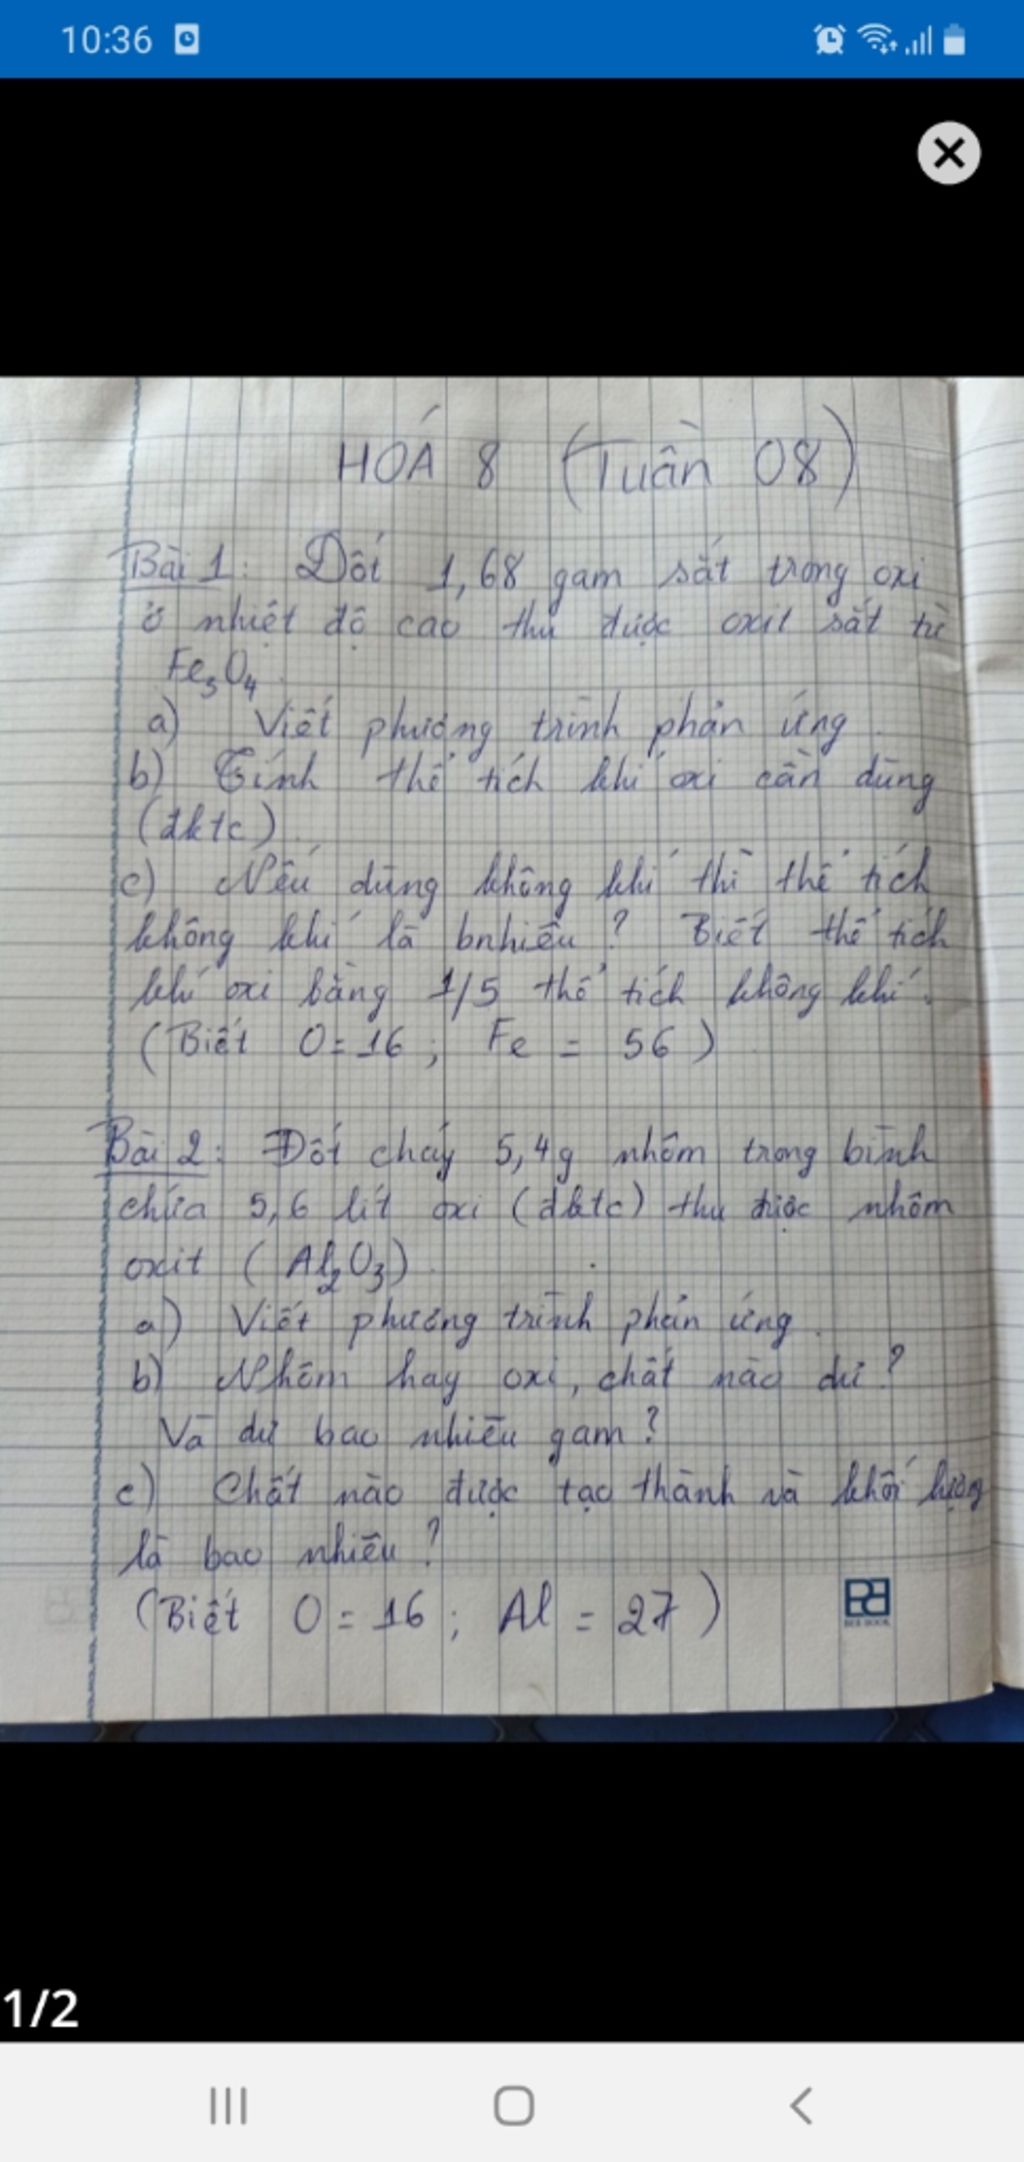 10:36
HOÁ 8 (Tuần 08)
Bài 1: Đốt 1,68 gam sắt trong oxi
ở nhiệt độ cao thu được oxit sắt từ
Fe3O4.
a) Viết phương trình phản ứng.
b) Tính thể tích khí oxi cần dùng
(đktc).
c) Nếu dùng không khí thì thể tích
không khí là bnhiêu? Biết thể tích
khí oxi bằng 1/5 thể tích không khí.
(Biết O = 16; Fe = 56).
Bài 2: Đốt cháy 5,4g nhôm trong bình
chứa 5,6 lít oxi (đktc) thu được nhôm
oxit (Al2O3).
a) Viết phương trình phản ứng.
b) Nhôm hay oxi, chất nào dư?
Và dư bao nhiêu gam?
c) Chất nào được tạo thành và khối lượng
là bao nhiêu?
(Biết O = 16; Al = 27)
1/2